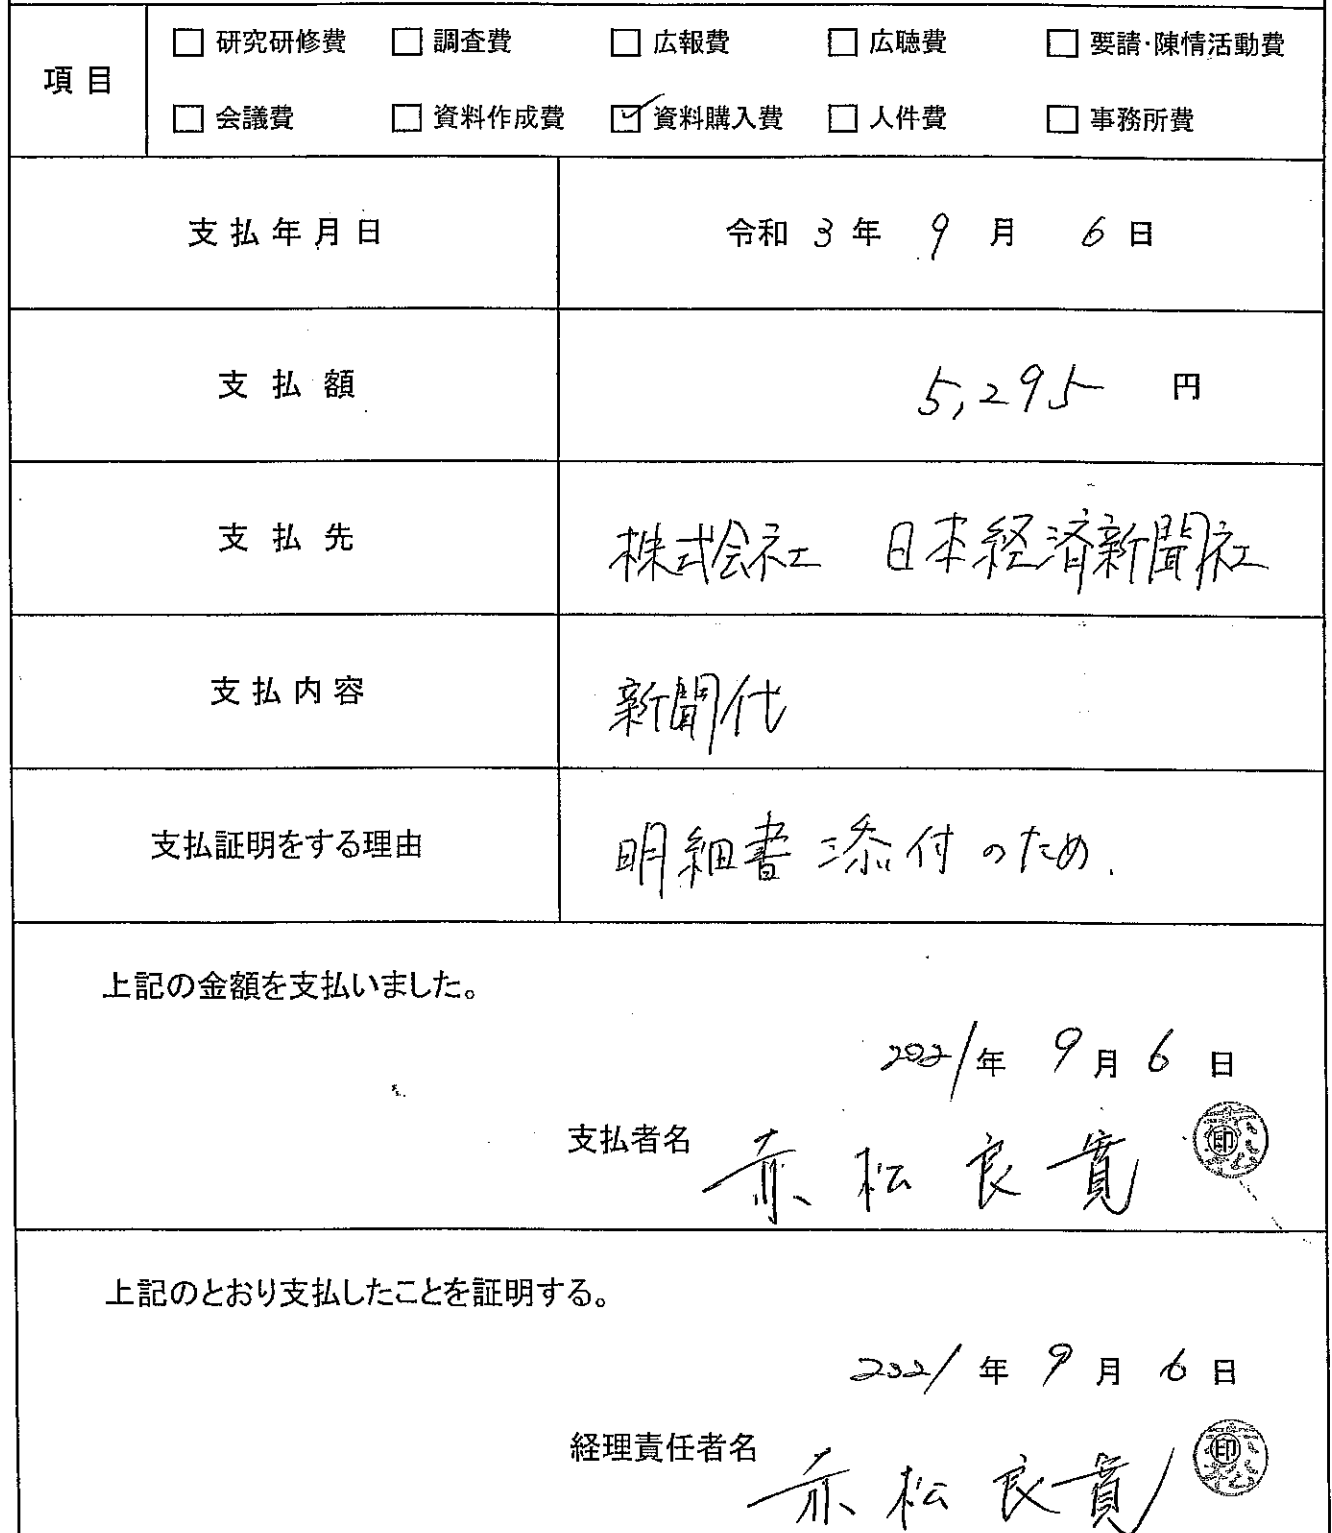 項目
□ 研究研修費 □ 調査費 □ 広報費 □ 広聴費 □ 要請・陳情活動費
□ 会議費 □ 資料作成費 ☑ 資料購入費 □ 人件費 □ 事務所費
支払年月日 令和 3 年 9 月 6 日
支払額 5,295 円
支払先 株式会社 日本経済新聞社
支払内容 新聞代
支払証明をする理由 明細書添付のため.
上記の金額を支払いました。
2021年 9月 6日
支払者名 赤松良寛 印
上記のとおり支払したことを証明する。
2021年 9月 6日
経理責任者名 赤松良寛 印